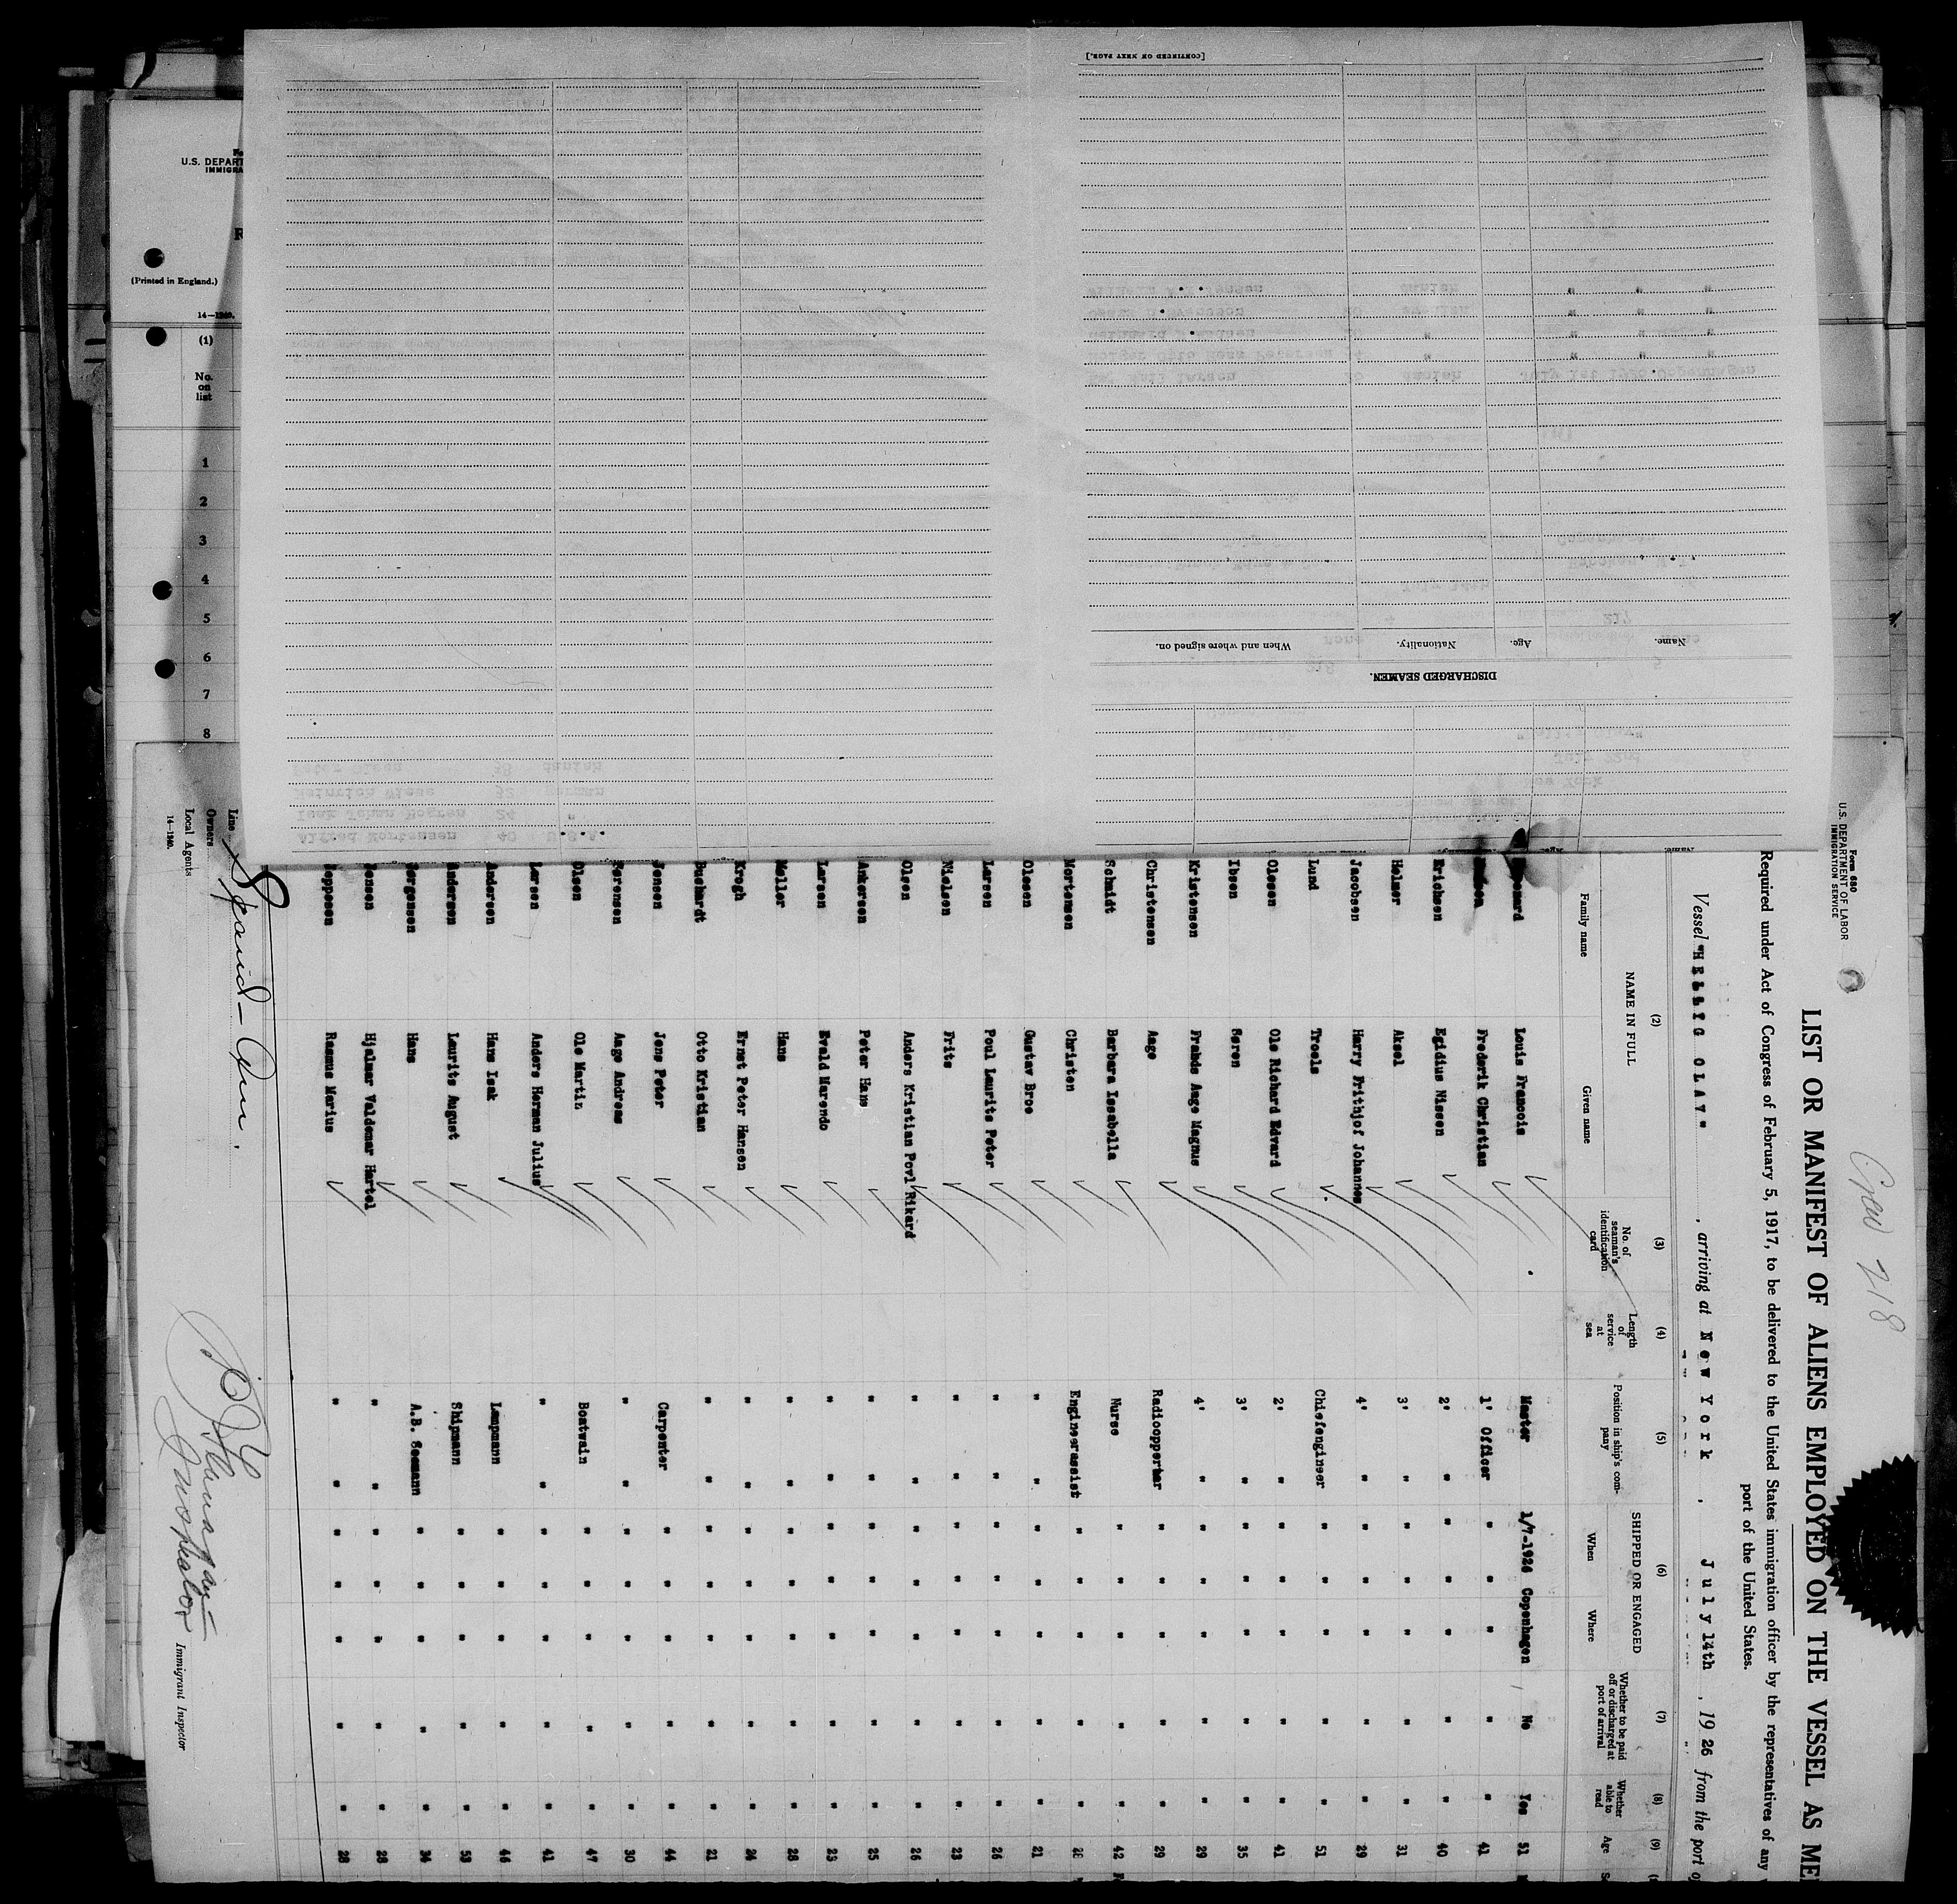 [CONTINUED ON NEXT PAGE.]
Name.
Age.
Nationality.
When and where signed on.
DISCHARGED SEAMEN.
U.S. DEPART
IMMIGRA
R
(Printed in England.)
14—1240.
(1)
No.
on
list
1
2
3
4
5
6
7
8
Crew 218
Form 680
U.S. DEPARTMENT OF LABOR
IMMIGRATION SERVICE
LIST OR MANIFEST OF ALIENS EMPLOYED ON THE VESSEL AS ME
Required under Act of Congress of February 5, 1917, to be delivered to the United States immigration officer by the representatives of any
port of the United States.
Vessel "HELLIG OLAV" , arriving at New York , July 14th , 1926 from the port o
(2) (3) (4) (5) (6) (7) (8) (9)
NAME IN FULL No. of seaman's identification card Length of service at sea Position in ship's company SHIPPED OR ENGAGED Whether to be paid off or discharged at port of arrival Whether able to read Age
Family name Given name When Where
Louis Francois Master 1/7-1926 Copenhagen No Yes 51
Frederik Christian 1' Officer " " " " " 41
Erichsen Egidius Nissen 2' " " " " " " 40
Helmer Aksel 3' " " " " " " 31
Jacobsen Harry Frithjof Johannes 4' " " " " " " 29
Lund Troels Chiefengineer " " " " " 51
Olesen Ole Richard Edvard 2' " " " " " " 41
Ibsen Søren 3' " " " " " " 35
Kristensen Frands Aage Magnus 4' " " " " " " 29
Christensen Aage Radioopperter " " " " " 29
Schmidt Barbara Issabella Nurse " " " " " 42
Mortensen Christen Engineerassist " " " " " 28
Olesen Gustav Broe " " " " " " " 21
Larsen Poul Laurits Peter " " " " " " " 26
Nielsen Frits " " " " " " " 23
Olsen Anders Kristian Povl Rikard " " " " " " " 26
Ankersen Peter Hans " " " " " " " 25
Larsen Evald Marendo " " " " " " " 23
Møller Hans " " " " " " " 28
Krogh Ernst Peter Hansen " " " " " " " 24
Buchardt Otto Kristian " " " " " " " 21
Jensen Jens Peter Carpenter " " " " " 44
Sørensen Aage Andreas " " " " " " " 30
Olsen Ole Martin Boatwain " " " " " 47
Larsen Anders Herman Julius " " " " " " " 41
Andersen Hans Isak Lampmann " " " " " 46
Andersen Laurits August Shipmann " " " " " 53
Jørgensen Hans A.B. Seemann " " " " " 34
Jensen Hjalmar Valdemar Hartel " " " " " " " 28
Jeppesen Rasmus Marius " " " " " " " 28
Line Scand-Am.
Owners
Local Agents
14—1240.
Inspector
Immigrant Inspector